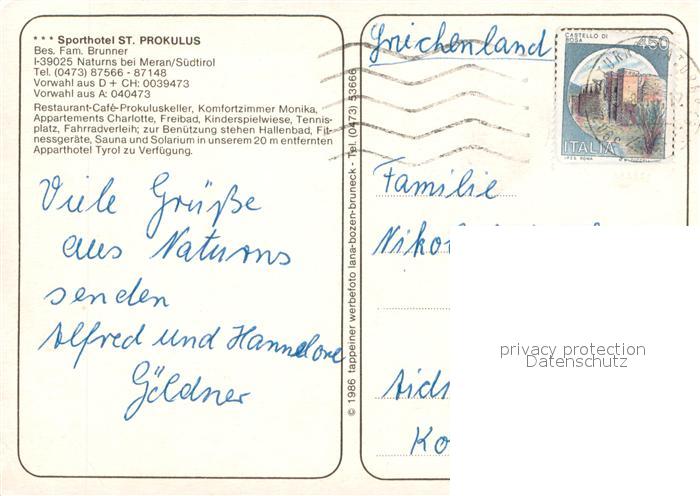 *** Sporthotel ST. PROKULUS
Bes. Fam. Brunner
I-39025 Naturns bei Meran/Südtirol
Tel. (0473) 87566 - 87148
Vorwahl aus D + CH: 0039473
Vorwahl aus A: 040473
Restaurant-Café-Prokuluskeller, Komfortzimmer Monika,
Appartements Charlotte, Freibad, Kinderspielwiese, Tennis-
platz, Fahrradverleih; zur Benützung stehen Hallenbad, Fit-
nessgeräte, Sauna und Solarium in unserem 20 m entfernten
Apparthotel Tyrol zu Verfügung.
Viele Grüße
aus Naturns
senden
Alfred und Hannelore
Göldner
© 1986 tappeiner werbefoto lana-bozen-bruneck - Tel. (0473) 53666
Griechenland
CASTELLO DI
BOSA
450
ITALIA
I.P.Z.S. ROMA
Familie
privacy protection
Datenschutz